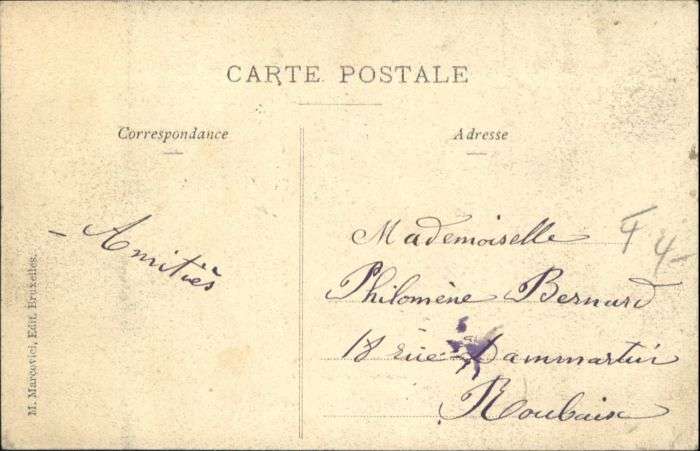 CARTE POSTALE
Correspondance
Adresse
Amitiés
Mademoiselle
Philomène Bernard
18 rue Dammartin
Roubaix
4-
M. Marcovici, Edit. Bruxelles.